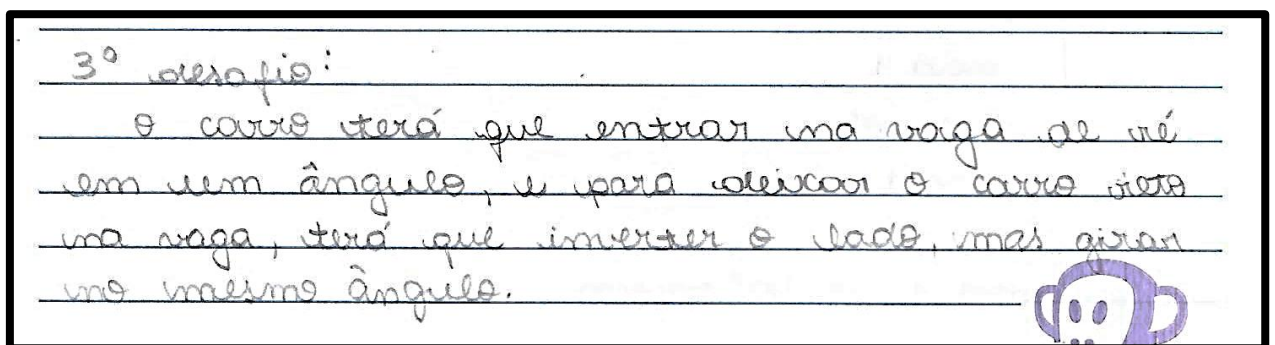 3º desafio:
O carro terá que entrar na vaga de ré
em um ângulo, e para deixar o carro reto
na vaga, terá que inverter o lado, mas girar
no mesmo ângulo.